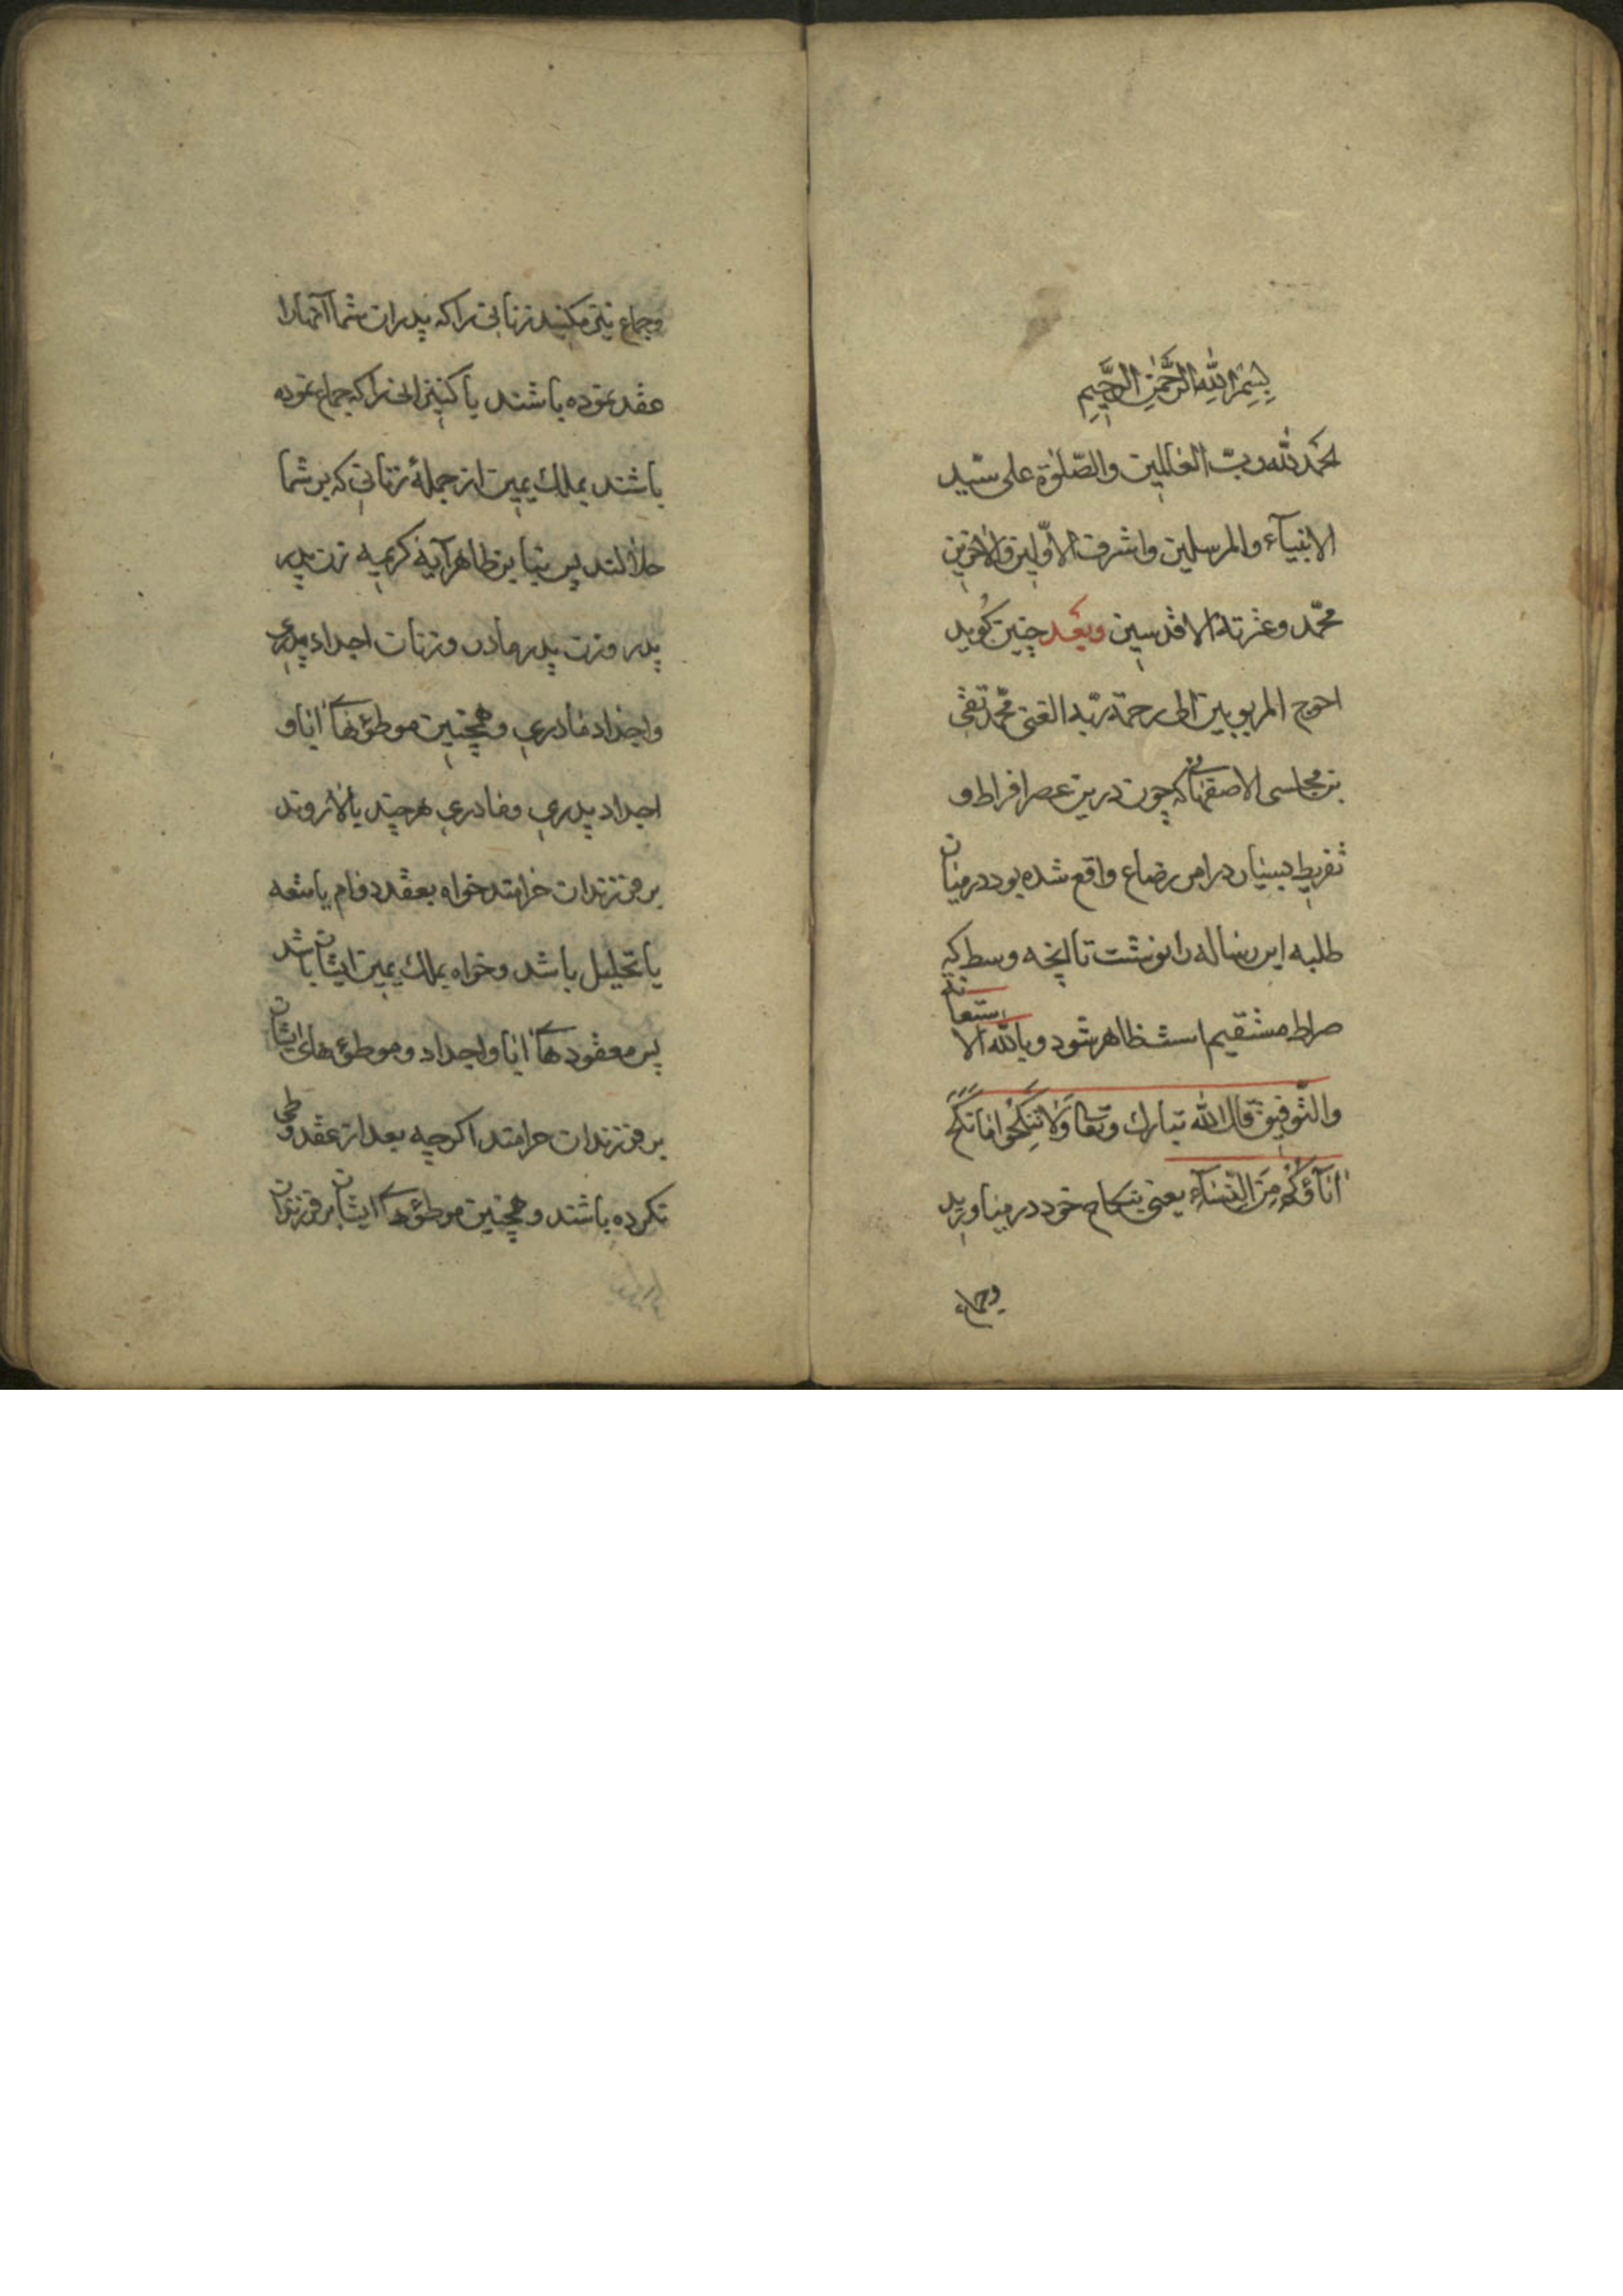 بسم الله الرحمن الرحیم
الحمد لله رب العالمین والصلوة علی سید
الانبیآء والمرسلین واشرف الاولین والاخرین
محمد وعترته الاقدسین وبعد چنین کوید
احوج المربوبین الی رحمة ربه الغنی محمد تقی
بن مجلسی الاصفهانی که چون درین عصر افراط و
تفریط بسیار در امر رضاع واقع شده بود در میان
طلبه این رساله را نوشت تا انچه وسط که
صراط مستقیم است ظاهر شود وبالله الاستعانة
والتوفیق قال الله تبارک وتعالی ولا تنکحوا ما نکح
اباؤکم من النسآء یعنی بنکاح خود در میاورید
وجماع
وجماع نیز مکنید زنانی را که پدران شما آنها را
عقد نموده باشند یا کنیزانی را که جماع نموده
باشند بملک یمین از جملهٔ زنانی که بر شما
حلالند پس بنابر ظاهر آیهٔ کریمه زن پدر
پدر وزن پدر مادر وزنان اجداد پدری
واجداد مادری وهمچنین موطؤهای ابا و
اجداد پدری ومادری هر چند بالا روند
بر فرزندان حرامند خواه بعقد دوام یا متعه
یا تحلیل باشد وخواه بملک یمین ایشان باشد
پس معقودهای ابا واجداد وموطؤهای ایشان
بر فرزندان حرامند اکرچه بعد از عقد وطی
نکرده باشند وهمچنین موطؤهای ایشان بر فرزندان